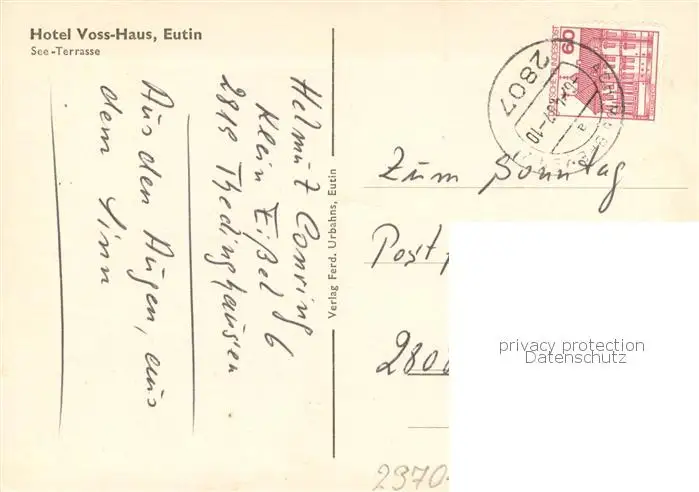 Hotel Voss-Haus, Eutin
See-Terrasse
Aus den Augen, aus
dem Sinn
Helmut Conring
Klein Eißel 6
2819 Thedinghausen
Verlag Ferd. Urbahns, Eutin
DEUTSCHE BUNDESPOST
60
2807
Zum Sonntag
Post
2808
privacy protection
Datenschutz
2970